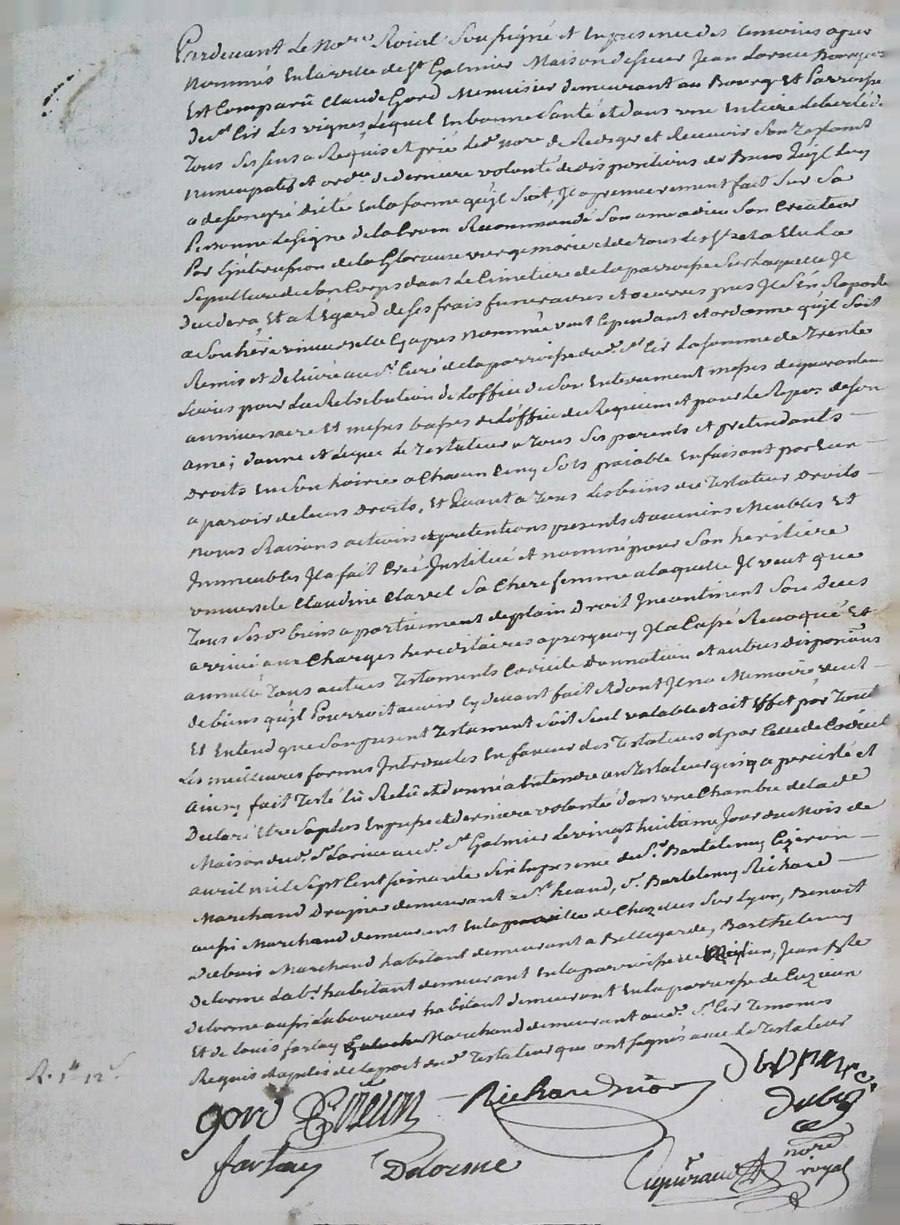 Pardevant Le No.re Roial Soussigné et En presence des temoins apres
nommés En la ville de St Galmier Maison de sieur Jean Larue Bourgeois
Est Comparû Claude Gord Menuisier demeurant au Bourg Et Parroisse
de st Cir Les vignes Lequel En bonne santé et dans une Entiere Liberté de
Tous Ses sens a Requis et prié Led. no.re de Rediger et Recevoir Son Testamt
nuncupatif et ord.re de derniere volonté et dispositions de Biens Qu'jl Luy
a de son gré dicté En la forme qu'jl suit, Jl a premierement fait Sur Sa
Personne Le signe de la Croix Recommandé Son ame a dieu Son Createur
Par L'jntercession de la Glorieuse vierge marie et de tous Les sts a Elu La
Sepulture de son Corps dans Le Cimetiere de la parroisse Sur Laquelle Jl
Decedera, Et a L'Egard de ses frais funeraires et oeuvres pies Jl s'En Raporte
a Son heritiere universelle Cy apres Nommée veut Cependant et ordonne qu'jl soit
Remis et Delivré au sr Curé de la parroisse de st Cir La somme de Trente
Livres pour La Retribution de L'office de Son Enterrement messes de quarantaine
anniversaire Et messes basses de L'office de Requiem et pour Le Repos de son
ame; donne et Legue Le Testateur a Tous Ses parents et pretendants
Droits En Son hoirie a Chacun Cinq Sols paiable En faisant par Eux
aparoir de Leurs Droits, Et Quant a Tous Les biens du Testateur Droits
Noms Raisons actions et pretentions presents et avenirs Meubles Et
Immeubles Jl a fait Créé Jnstitué et nommé pour Son heritiere
universelle Claudine Clavel Sa Chere femme a laquelle Jl veut que
Tous Sesds biens apartiennent de plain Droit Jncontinent Son Deces
arrivé aux Charges hereditaires apres quoy Jl a Cassé Revoqué Et
annullé Tous autres Testaments Codicile donnation et autres dispositions
de biens qu'jl Pourroit avoir Cy devant fait et dont Jl n'a Memoire veut
Et Entend que Son present Testament Soit Seul valable et ait Effet par Tout
Les meilleures formes Introduites En faveur des Testateurs et par Celle de Codicil
Ainsy fait Testé Lû Relû et donné a Entendre au Testateur qui y a persisté et
Declaré Etre Sa plus Expresse et derniere volonté dans une Chambre de lade
Maison du d. sr Larue aud. St Galmier Le vingt huitieme Jour du Mois de
avril mil Sept Cent soixante Six En presence de Sr Bartelemy
Marchand Drapier demeurant Sr Bartelemy Richard
aussi Marchand demeurant En la ville de Chazelles Sur Lyon, Benoit
Dubuis Marchand habitant demeurant a Bellegarde, Barthelemy
Delorme Lab.r habitant demeurant En la parroisse de Jean Bte
Delorme aussi Laboureur habitant demeurant En la parroisse de Cuzieu
Et de Louis farlay Marchand demeurant aud. St Cir Temoins
Requis et apellés de la part du d. Testateur que ont signés avec Le Testateur
R. 1# 12s
gord Richard Dubuis
farlay Delorme
nore royal